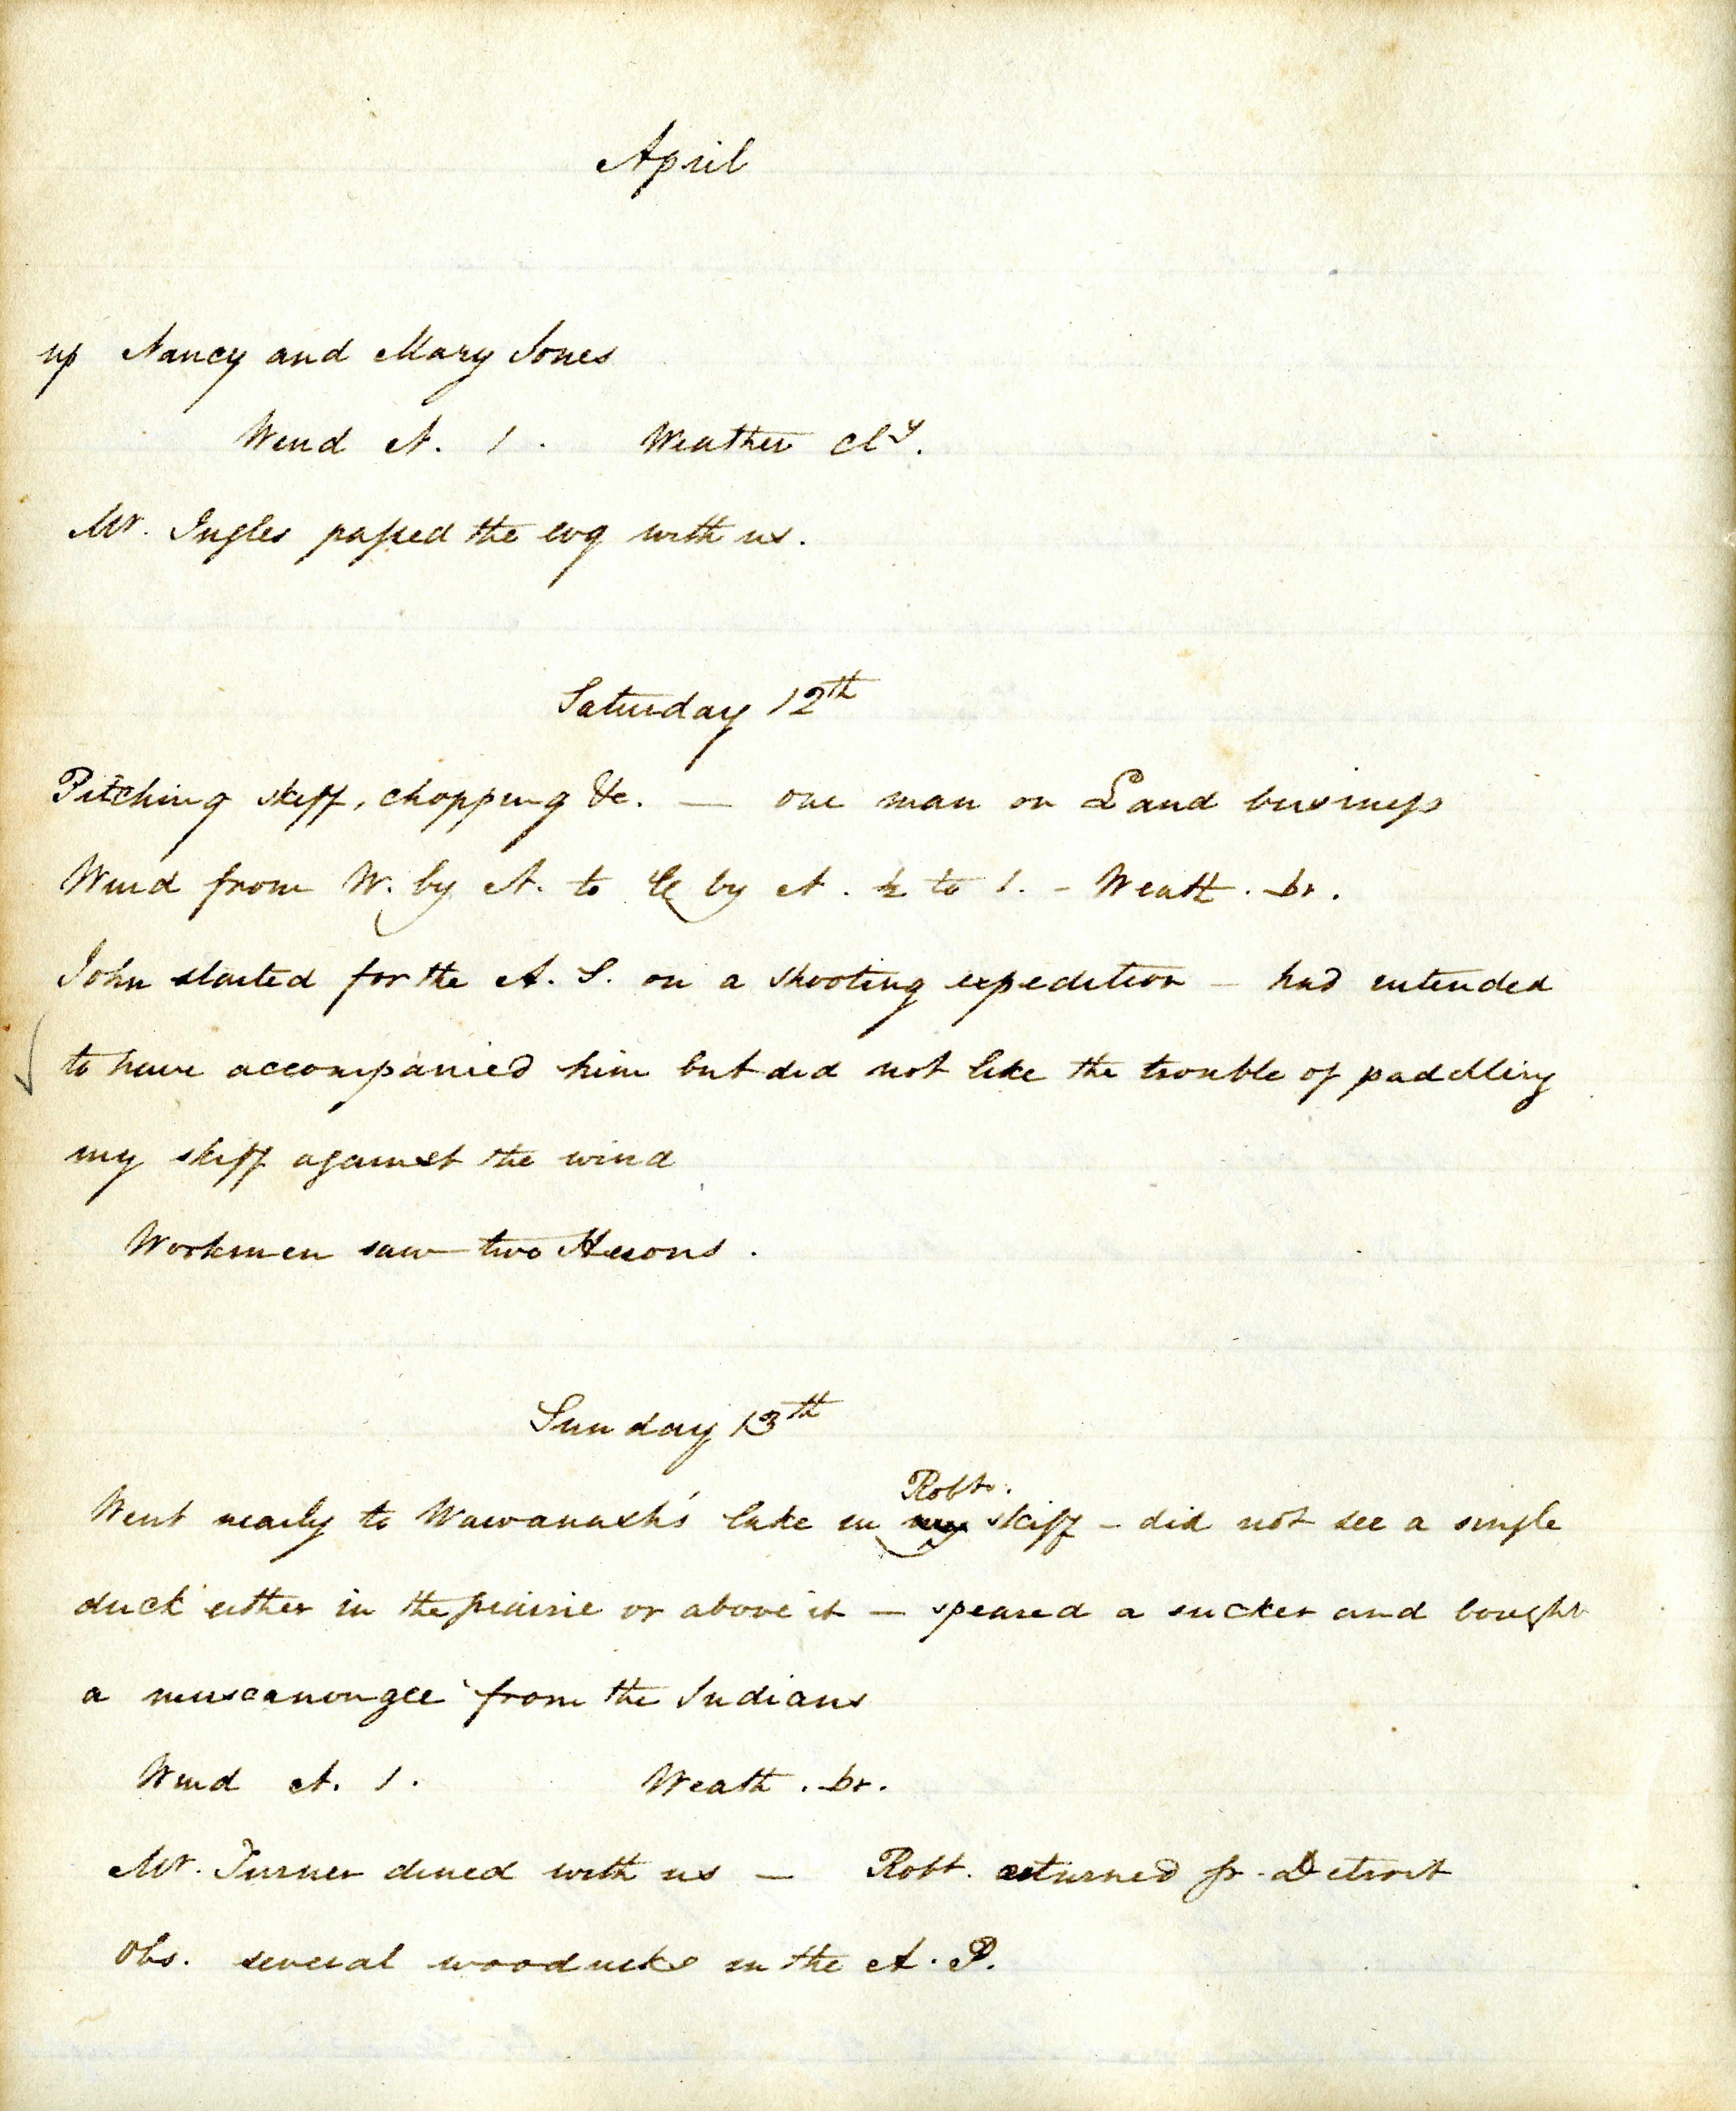 April
up Nancy and Mary Jones
Wind N. 1. Weather Cly.
Mr. Ingles passed the evg with us.
Saturday 12th
Pitching skiff, chopping &c. — one man on Land business
Wind from W. by N. to E by N. ½ to 1. - Weath. br.
John started for the A. S. on a shooting expedition - had intended
to have accompanied him but did not like the trouble of paddling
my skiff against the wind
Workmen saw two Herons.
Sunday 13th
Went nearly to Wawanash's lake in my Robts. skiff - did not see a single
duck either in the prairie or above it - speared a sucker and bought
a muscanongee from the Indians
Wind N. 1. Weath. br.
Mr. Turner dined with us — Robt. returned fr. Detroit
Obs. several wooducks in the A. P.